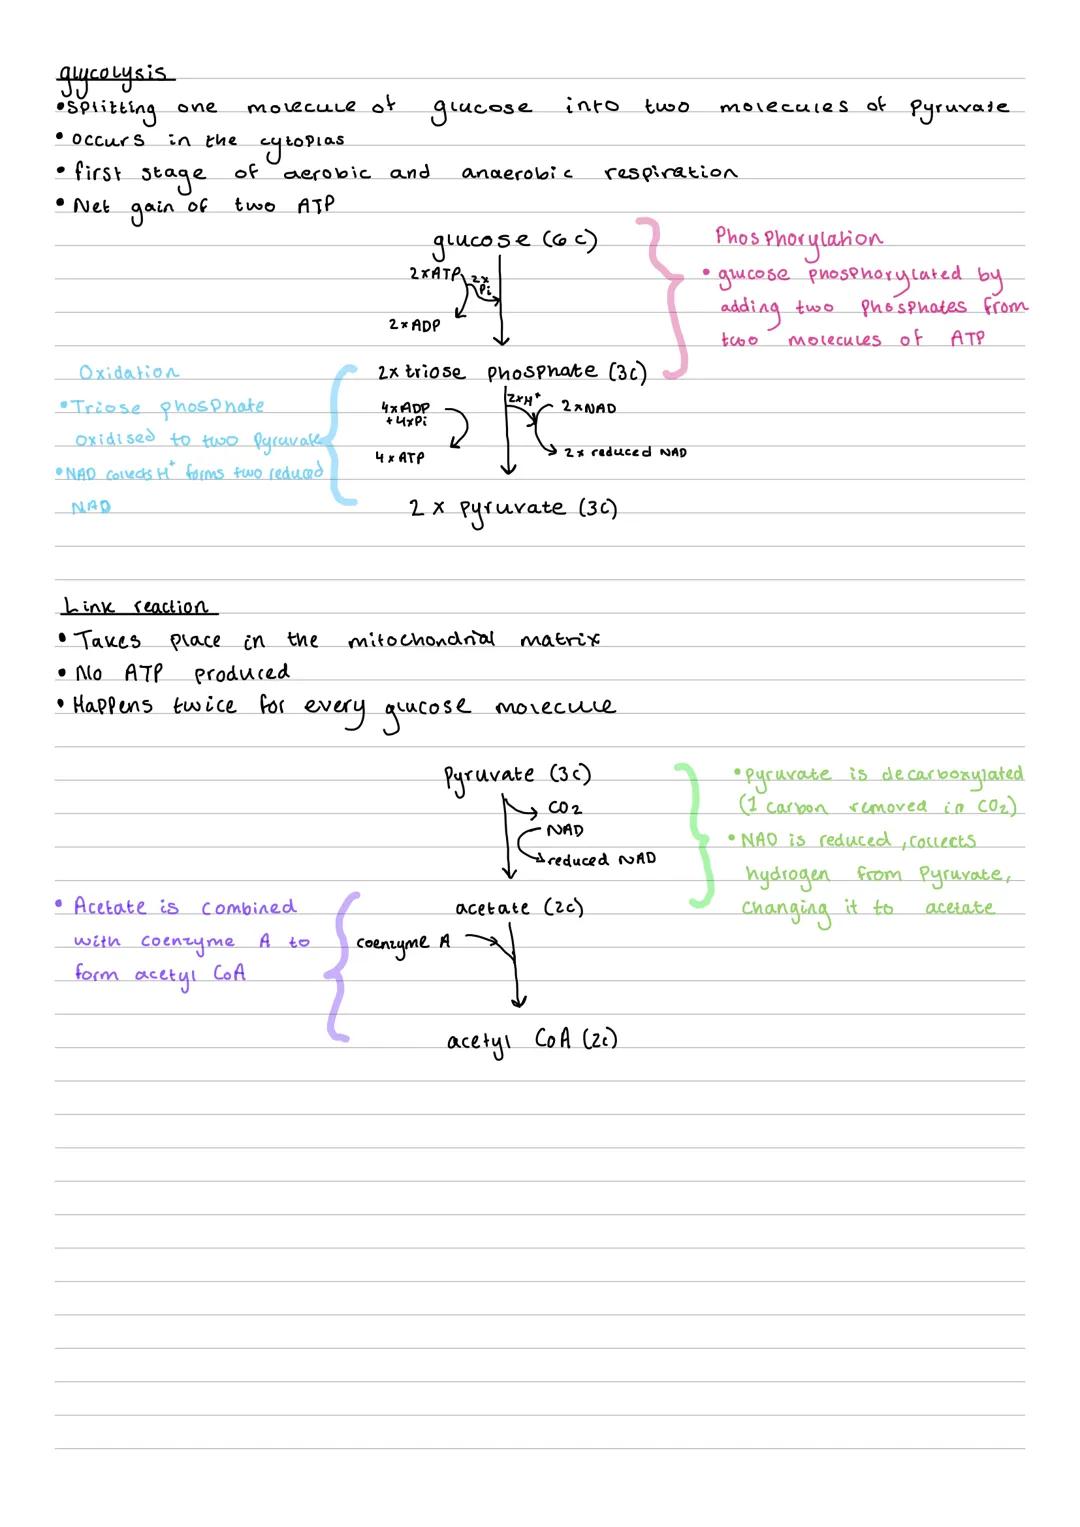 glycolysis
•splitting one molecule of glucose into two molecules of Pyruvate
• occurs in the cytoplas
• first stage of aerobic and anaerobic respiration
• Net gain of two ATP
glucose (6c)
2xATP
2x
Pi
2xADP
Phosphorylation
• glucose phosphorylated by
adding two phosphates from
two molecules of ATP
2x triose phosphate (3c)
Oxidation
•Triose phosphate
oxidised to two Pyruvate
•NAD collects H⁺ forms two reduced
NAD
4xADP
+4xPi
4xATP
2xH⁺
2xNAD
2x reduced NAD
2 x pyruvate (3c)
Link reaction
• Takes place in the mitochondrial matrix
• No ATP produced
• Happens twice for every glucose molecule
Pyruvate (3c)
CO₂
NAD
reduced NAD
• pyruvate is decarboxylated
(1 carbon removed in CO₂)
• NAD is reduced, collects
hydrogen from Pyruvate,
changing it to acetate
acetate (2c)
• Acetate is combined
with coenzyme A to
form acetyl CoA
coenzyme A
acetyl CoA (2c)